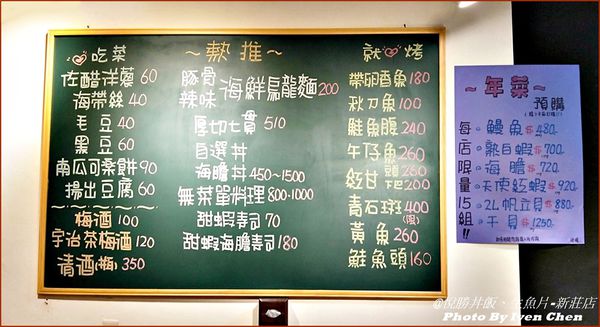 吃菜
佐醋洋蔥 60
海帶絲 40
毛豆 40
黑豆 60
南瓜可樂餅 90
揚出豆腐 60
梅酒 100
宇治茶梅酒 120
清酒(梅) 350
~熱推~
豚骨辣味海鮮烏龍麵 200
厚切七貫 510
自選丼
海膽丼 450~1500
無菜單料理 800-1000
甜蝦壽司 70
甜蝦海膽壽司 180
就烤
帶卵香魚 180
秋刀魚 100
鮭魚腹 240
午仔魚 260
紅甘頭下巴 260 200
青石斑 400 (限)
黃魚 260
鮭魚頭 160
~年菜~
預購
每店限量15組!!
鰻魚 $480.
熟白蝦 $700.
海膽 $720
天使紅蝦 $920
2L帆立貝 $880-
干貝 $1250.
@悅勝丼飯、生魚片-新莊店
Photo By Iven Chen